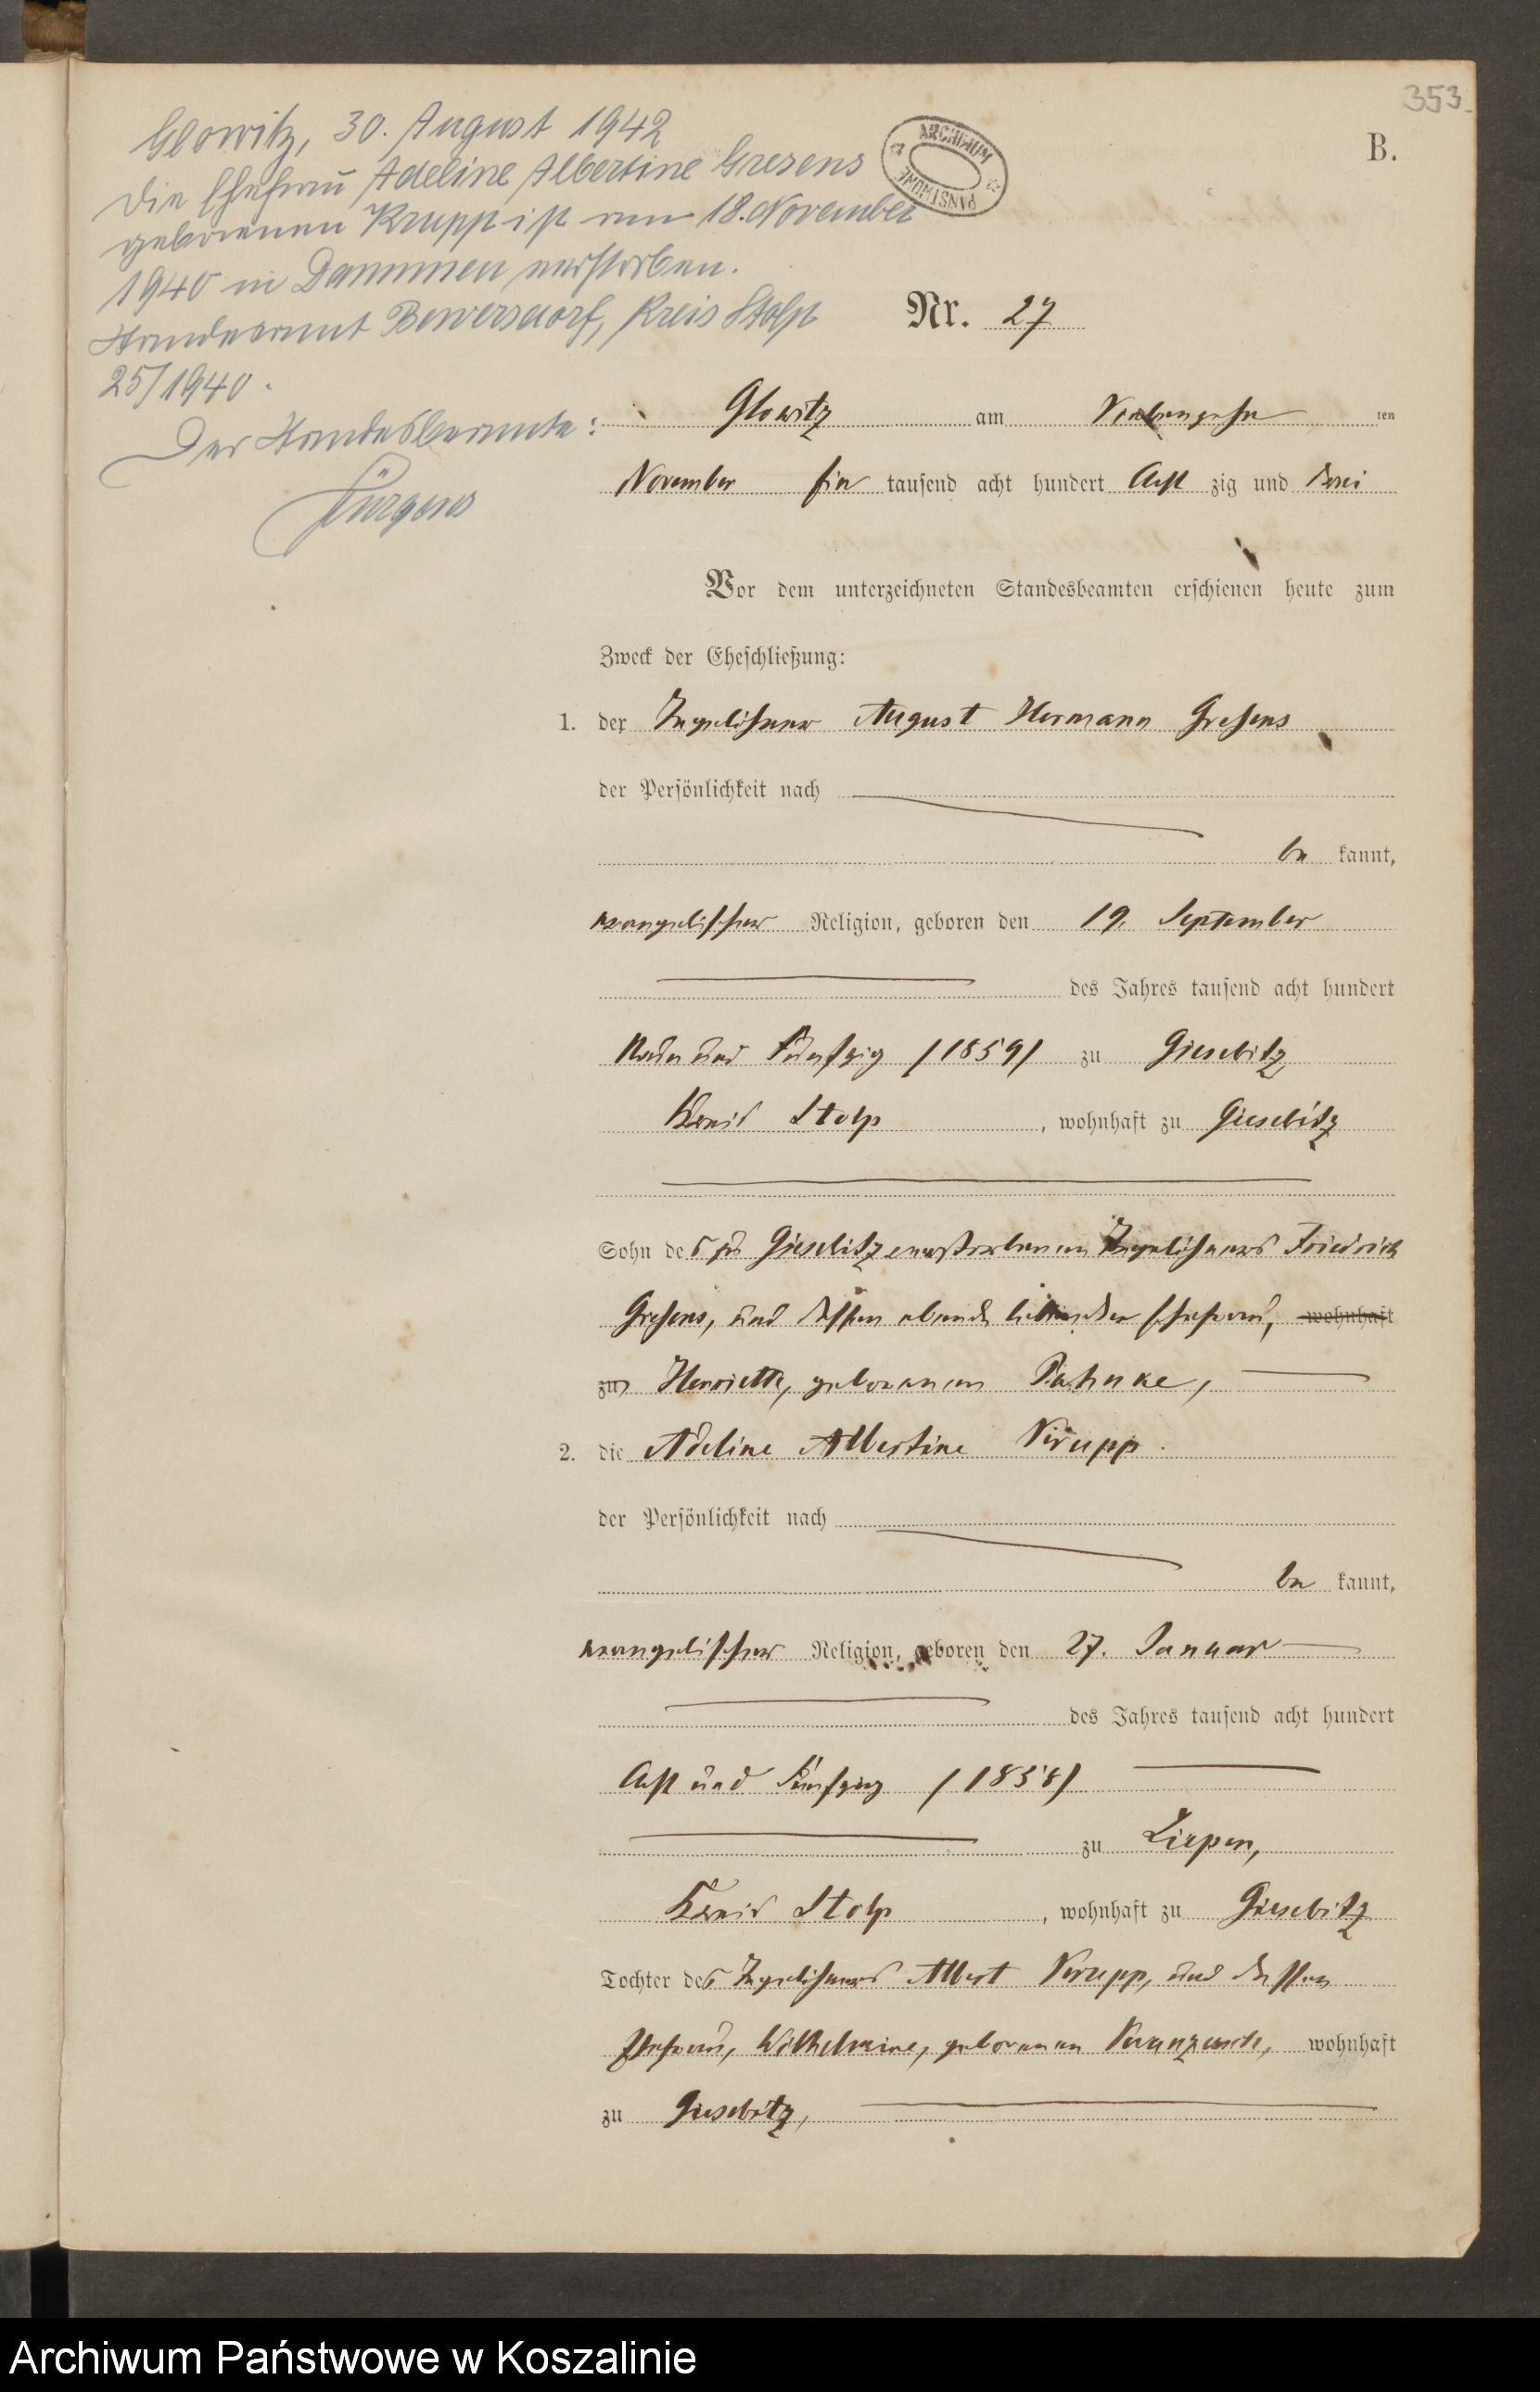 353.
B.
Glowitz, 30. August 1942
Die Ehefrau Adeline Albertine Gresens
geborenen Krupp ist am 18. November
1940 in Dammen verstorben.
Standesamt Bewersdorf, Kreis Stolp
25/1940.
Der Standesbeamte:
ARCHIWUM PAŃSTWOWE
Nr. 27
Glowitz am ten
November Ein tausend acht hundert Acht zig und drei
Vor dem unterzeichneten Standesbeamten erschienen heute zum
Zweck der Eheschließung:
1. der Tagelöhner August Hermann Gresens
der Persönlichkeit nach
be kannt,
evangelischer Religion, geboren den 19. September
des Jahres tausend acht hundert
Neun und Fünfzig /1859/ zu Giesebitz
Kreis Stolp, wohnhaft zu Giesebitz
Sohn des zu Giesebitz verstorbenen Tagelöhners Friedrich
Gresens, und dessen Ehefrau, wohnhaft
zu Henriette, geborenen Pahnke,
2. die Adeline Albertine Krupp.
der Persönlichkeit nach
be kannt,
evangelischer Religion, geboren den 27. Januar
des Jahres tausend acht hundert
Acht und Fünfzig /1858/
zu Liepen,
Kreis Stolp, wohnhaft zu Giesebitz
Tochter des Tagelöhners Albert Krupp, und dessen
Ehefrau, Wilhelmine, geborenen wohnhaft
zu Giesebitz,
Archiwum Państwowe w Koszalinie